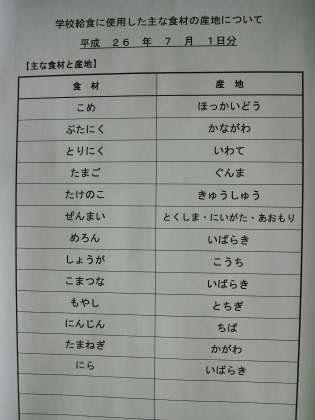 学校給食に使用した主な食材の産地について
平成 26 年 7 月 1日分
【主な食材と産地】
食 材 産 地
こめ ほっかいどう
ぶたにく かながわ
とりにく いわて
たまご ぐんま
たけのこ きゅうしゅう
ぜんまい とくしま・にいがた・あおもり
めろん いばらき
しょうが こうち
こまつな いばらき
もやし とちぎ
にんじん ちば
たまねぎ かがわ
にら いばらき